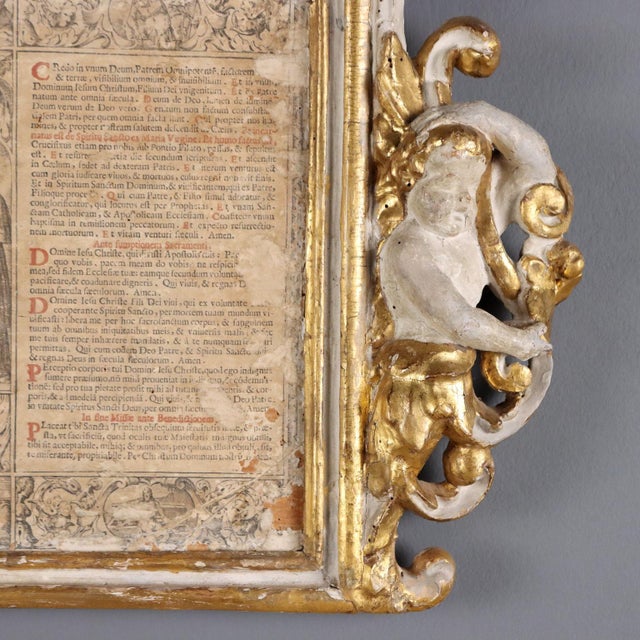 CRedo in vnum Deum, Patrem Omnipotentē, factorem
& terræ, visibilium omnium, & inuisibilium. Et in vnum
Dominum Iesum Christum, Filium Dei vnigenitum. Et ex Patre
natum ante omnia sæcula. Deum de Deo, lumen de lumine
Deum verum de Deo vero. Genitum non factum consubsta
Patri, per quem omnia facta sunt. Qui propter nos
mines, & propter nostram salutem descendit de Cælis. Et incar
natus est de Spiritu Sancto ex Maria Virgine, Et homo factus
Crucifixus etiam pro nobis sub Pontio Pilato, passus, & sepultus
est. Et resurr tertia die secundum scripturas. Et ascendit
in Cælum, sedet ad dexteram Patris. Et iterum venturus est
cum gloria iudicare viuos, & mortuos, cuius
Et in Spiritum Sanctum Dominum, & viuificantem, qui ex Patre,
Filioque procedit. Qui cum Patre, & Filio simul adoratur, &
conglorificatur, qui locutus est per Prophetas. Et vnam San
ctam Catholicam, & Apostolicam Ecclesiam. Confiteor vnum
baptisma in remissionem peccatorum. Et expecto resurrectionem
mortuorum. Et vitam venturi sæculi. Amen.
Ante sumptionem Sacramenti.
DOmine Iesu Christe, qui dixisti Apostolis
quo vobis, pacem meam do vobis ne respicias
mea, sed fidem Ecclesiæ tuæ: eamque secundum voluntat
pacificare, & coadunare digneris. Qui viuis, & regnas D
omnia sæcula sæculorum. Amen.
DOmine Iesu Christe Fili Dei viui, qui ex voluntate
cooperante Spiritu Sancto, per mortem tuam mundum vi
uificasti: libera me per hoc sacrosanctum corpus, & sanguinem
tuum ab omnibus iniquitatibus meis, & vniuersis malis, &
me tuis semper inhærere mandatis, & à te nunquam
permittas. Qui cum eodem Deo Patre, & Spiritu Sancto
& regnas Deus in sæcula sæculorum. Amen.
PErceptio corporis tui Domine Iesu Christe, quod ego indignus
sumere præsumo non mihi proueniat in iudicium, & condemna
tionem: sed pro tua pietate prosit mihi ad tutam & corporis, &
ad medelā percipiendā. Deo Patre,
in vnitate Spiritus Sancti Deus, per omnia Amen
In fine Missæ ante Benedictionem
PLaceat tibi Sancta Trinitas obsequium seruitutis meæ, & præ
sta, vt sacrificium, quod oculis tuæ Maiestatis indignus obtuli,
tibi sit acceptabile, mihiq; & omnibus, pro quibus illud obtuli, sit,
te miserante, propitiabile. Per Christum Dominum nostrum